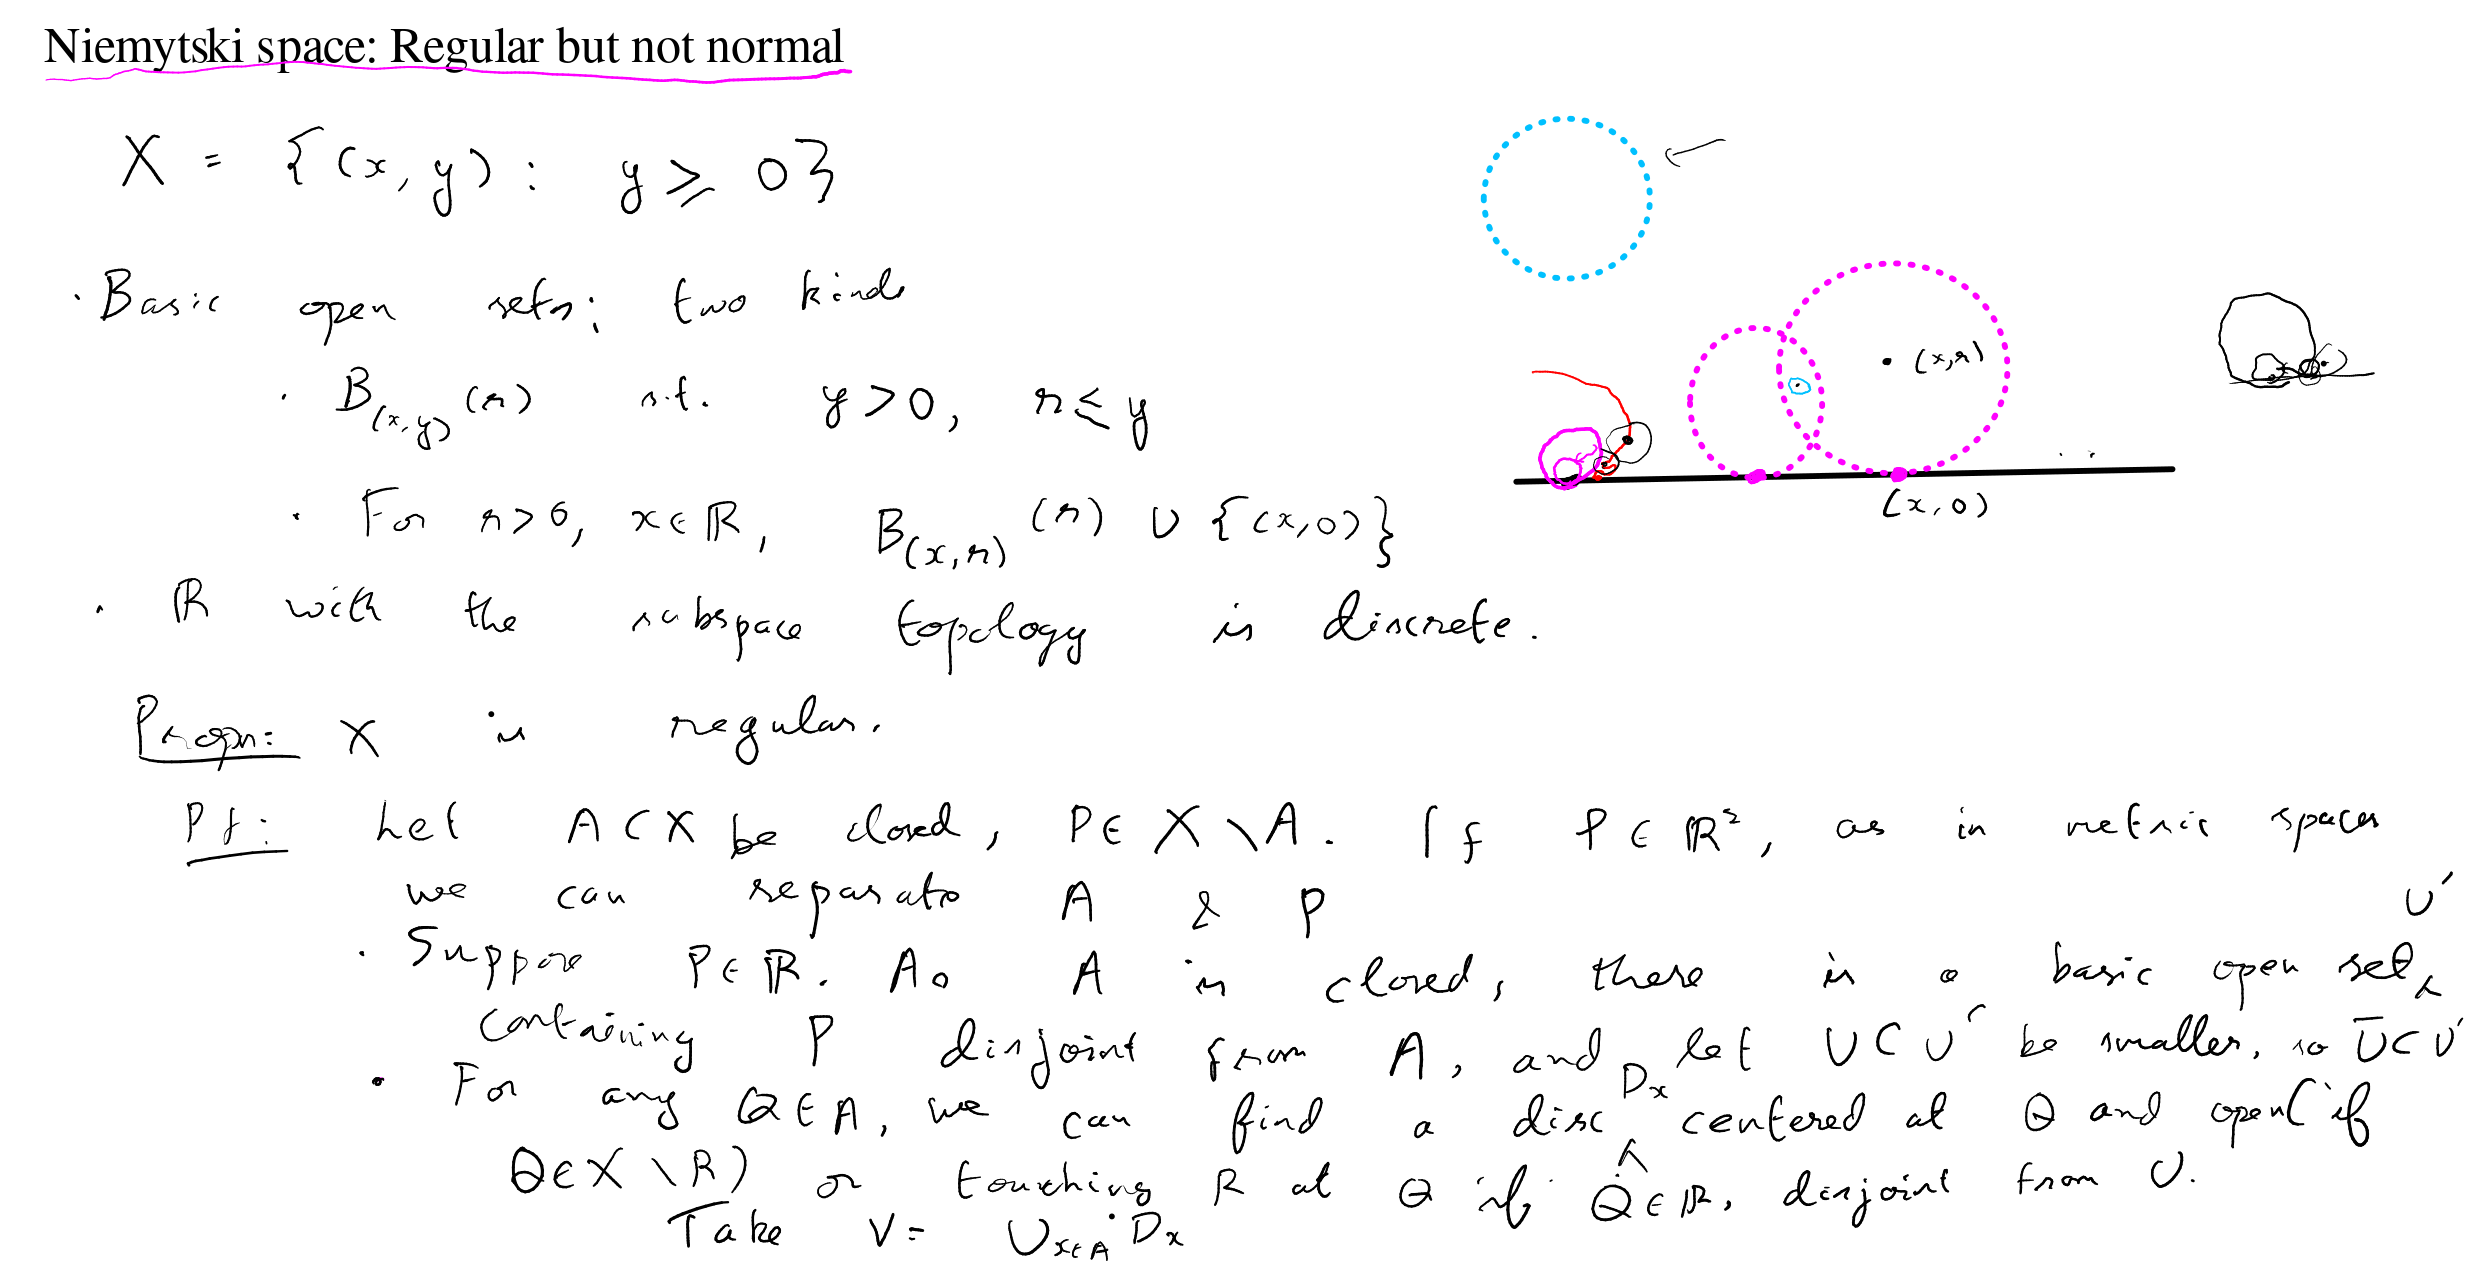 Niemytski space: Regular but not normal
X = {(x, y) : y ≥ 0}
· Basic open sets: two kinds
· B_(x,y) (r) s.t. y > 0, r ≤ y
(x, r)
· For r > 0, x ∈ ℝ, B_(x,r) (r) ∪ {(x, 0)}
(x, 0)
· ℝ with the subspace topology is discrete.
Propn: X is regular.
Pf: Let A ⊂ X be closed, P ∈ X \ A. If P ∈ ℝ², as in metric spaces
we can separate A & P
· Suppose P ∈ ℝ. As A is closed, there is a basic open set U'
containing P disjoint from A, and let U ⊂ U' be smaller, so Ū ⊂ U'
· For any Q ∈ A, we can find a disc D_x centered at Q and open (if
Q ∈ X \ ℝ) or touching ℝ at Q if Q ∈ ℝ, disjoint from U.
Take V = ∪_{x∈A} D_x